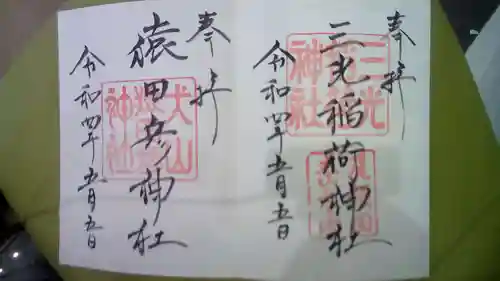 奉拝
三光稲荷神社
令和四年五月五日
三光稲荷神社
奉拝
猿田彦神社
令和四年五月五日
犬山猿田彦神社